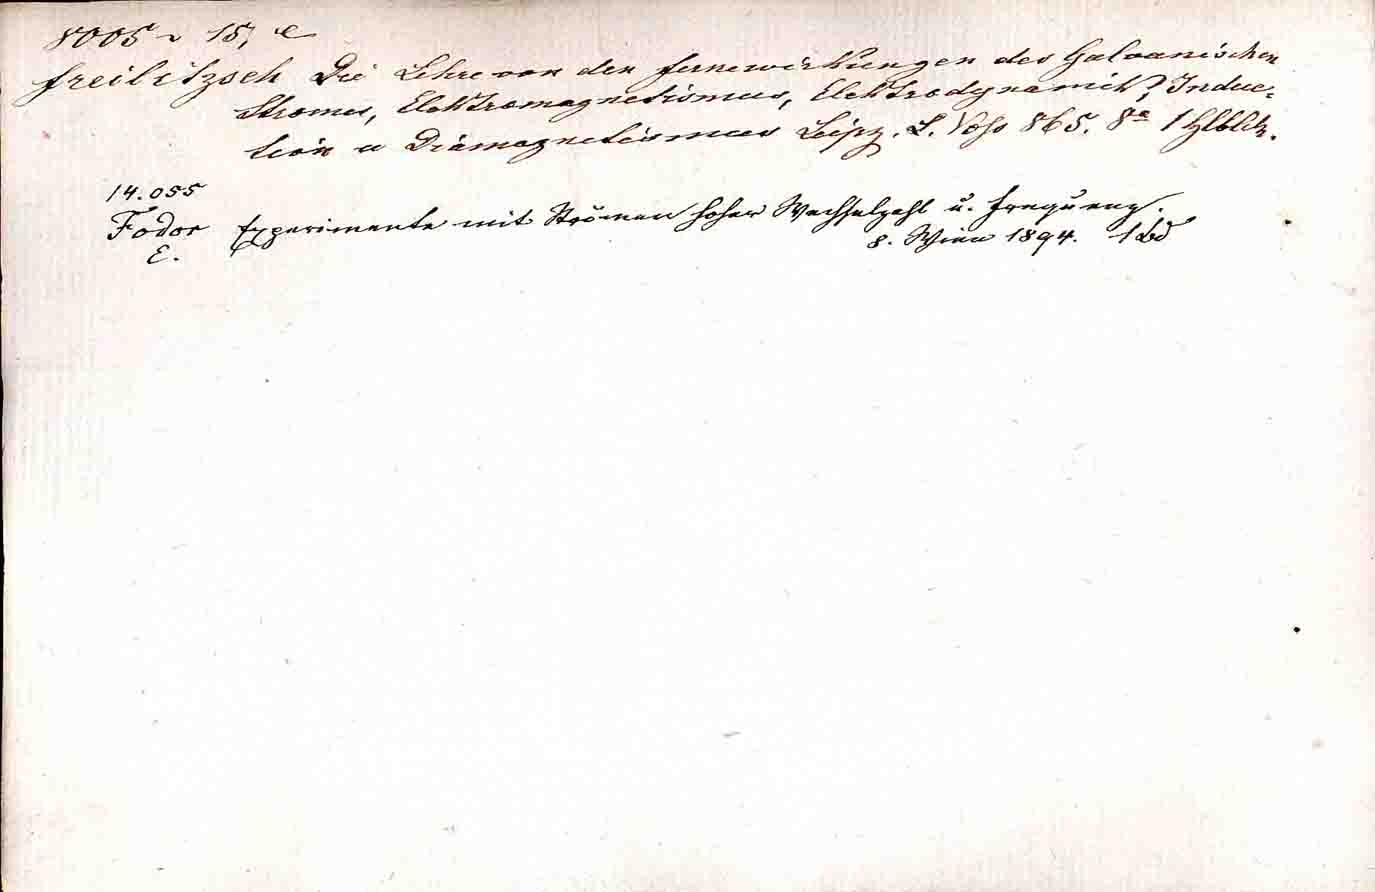 8005 15, e
Freilitzsch Die Lehre von den Fernewirkungen des Galvanischen
Stromes, Elektromagnetismus, Elektrodynamik, Induc=
tion u Diamagnetismus Leipz. L. Voss 865. 8° 1 Hlbld.
14.055
Fodor Experimente mit Strömen hoher Wechselzahl u. Frequenz.
E. 8. Wien 1894. 1 Bd